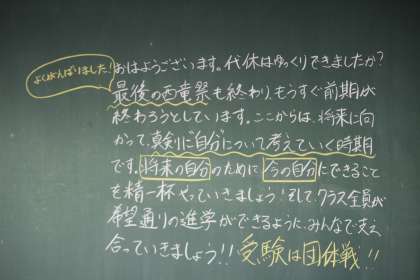 よくがんばりました!
おはようございます。代休はゆっくりできましたか?
最後の西竜祭も終わり、もうすぐ前期が
終わろうとしています。ここからは、将来に向
かって、真剣に自分について考えていく時期
です。将来の自分のために今の自分にできること
を精一杯やっていきましょう!そして、クラス全員が
希望通りの進学ができるように、みんなで支え
合っていきましょう!!受験は団体戦!!